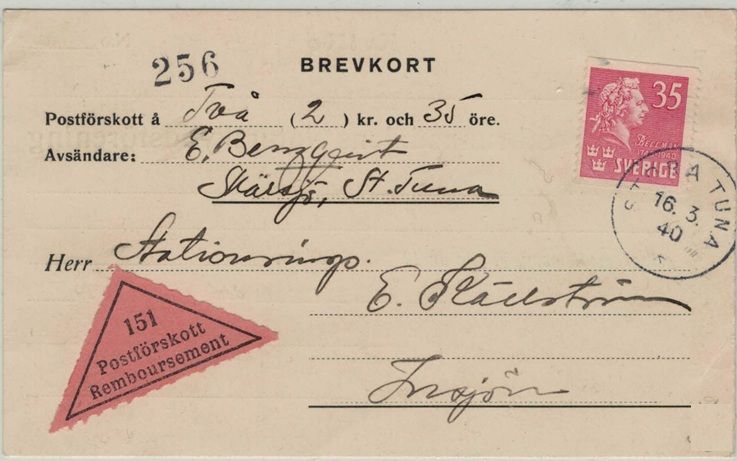 256
BREVKORT
Postförskott å Två (2) kr. och 35 öre.
Avsändare: E.
St. Tuna
Herr
E.
Insjön
35
BELLMAN
1740-1940
SVERIGE
TUNA
16. 3.
40
151
Postförskott
Remboursement